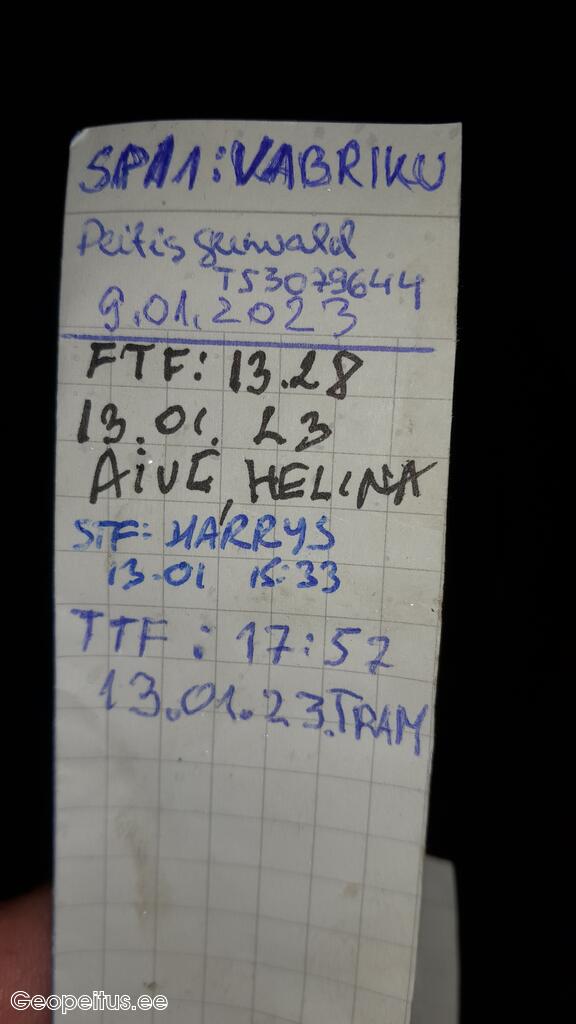 SP11:VABRIKU
Peitis gunvald
T53079644
9.01.2023
FTF: 13.28
13.01.23
AIVE, HELINA
STF: HARRYS
13.01 15:33
TTF: 17:57
13.01.23.TRAM
Geopeitus.ee